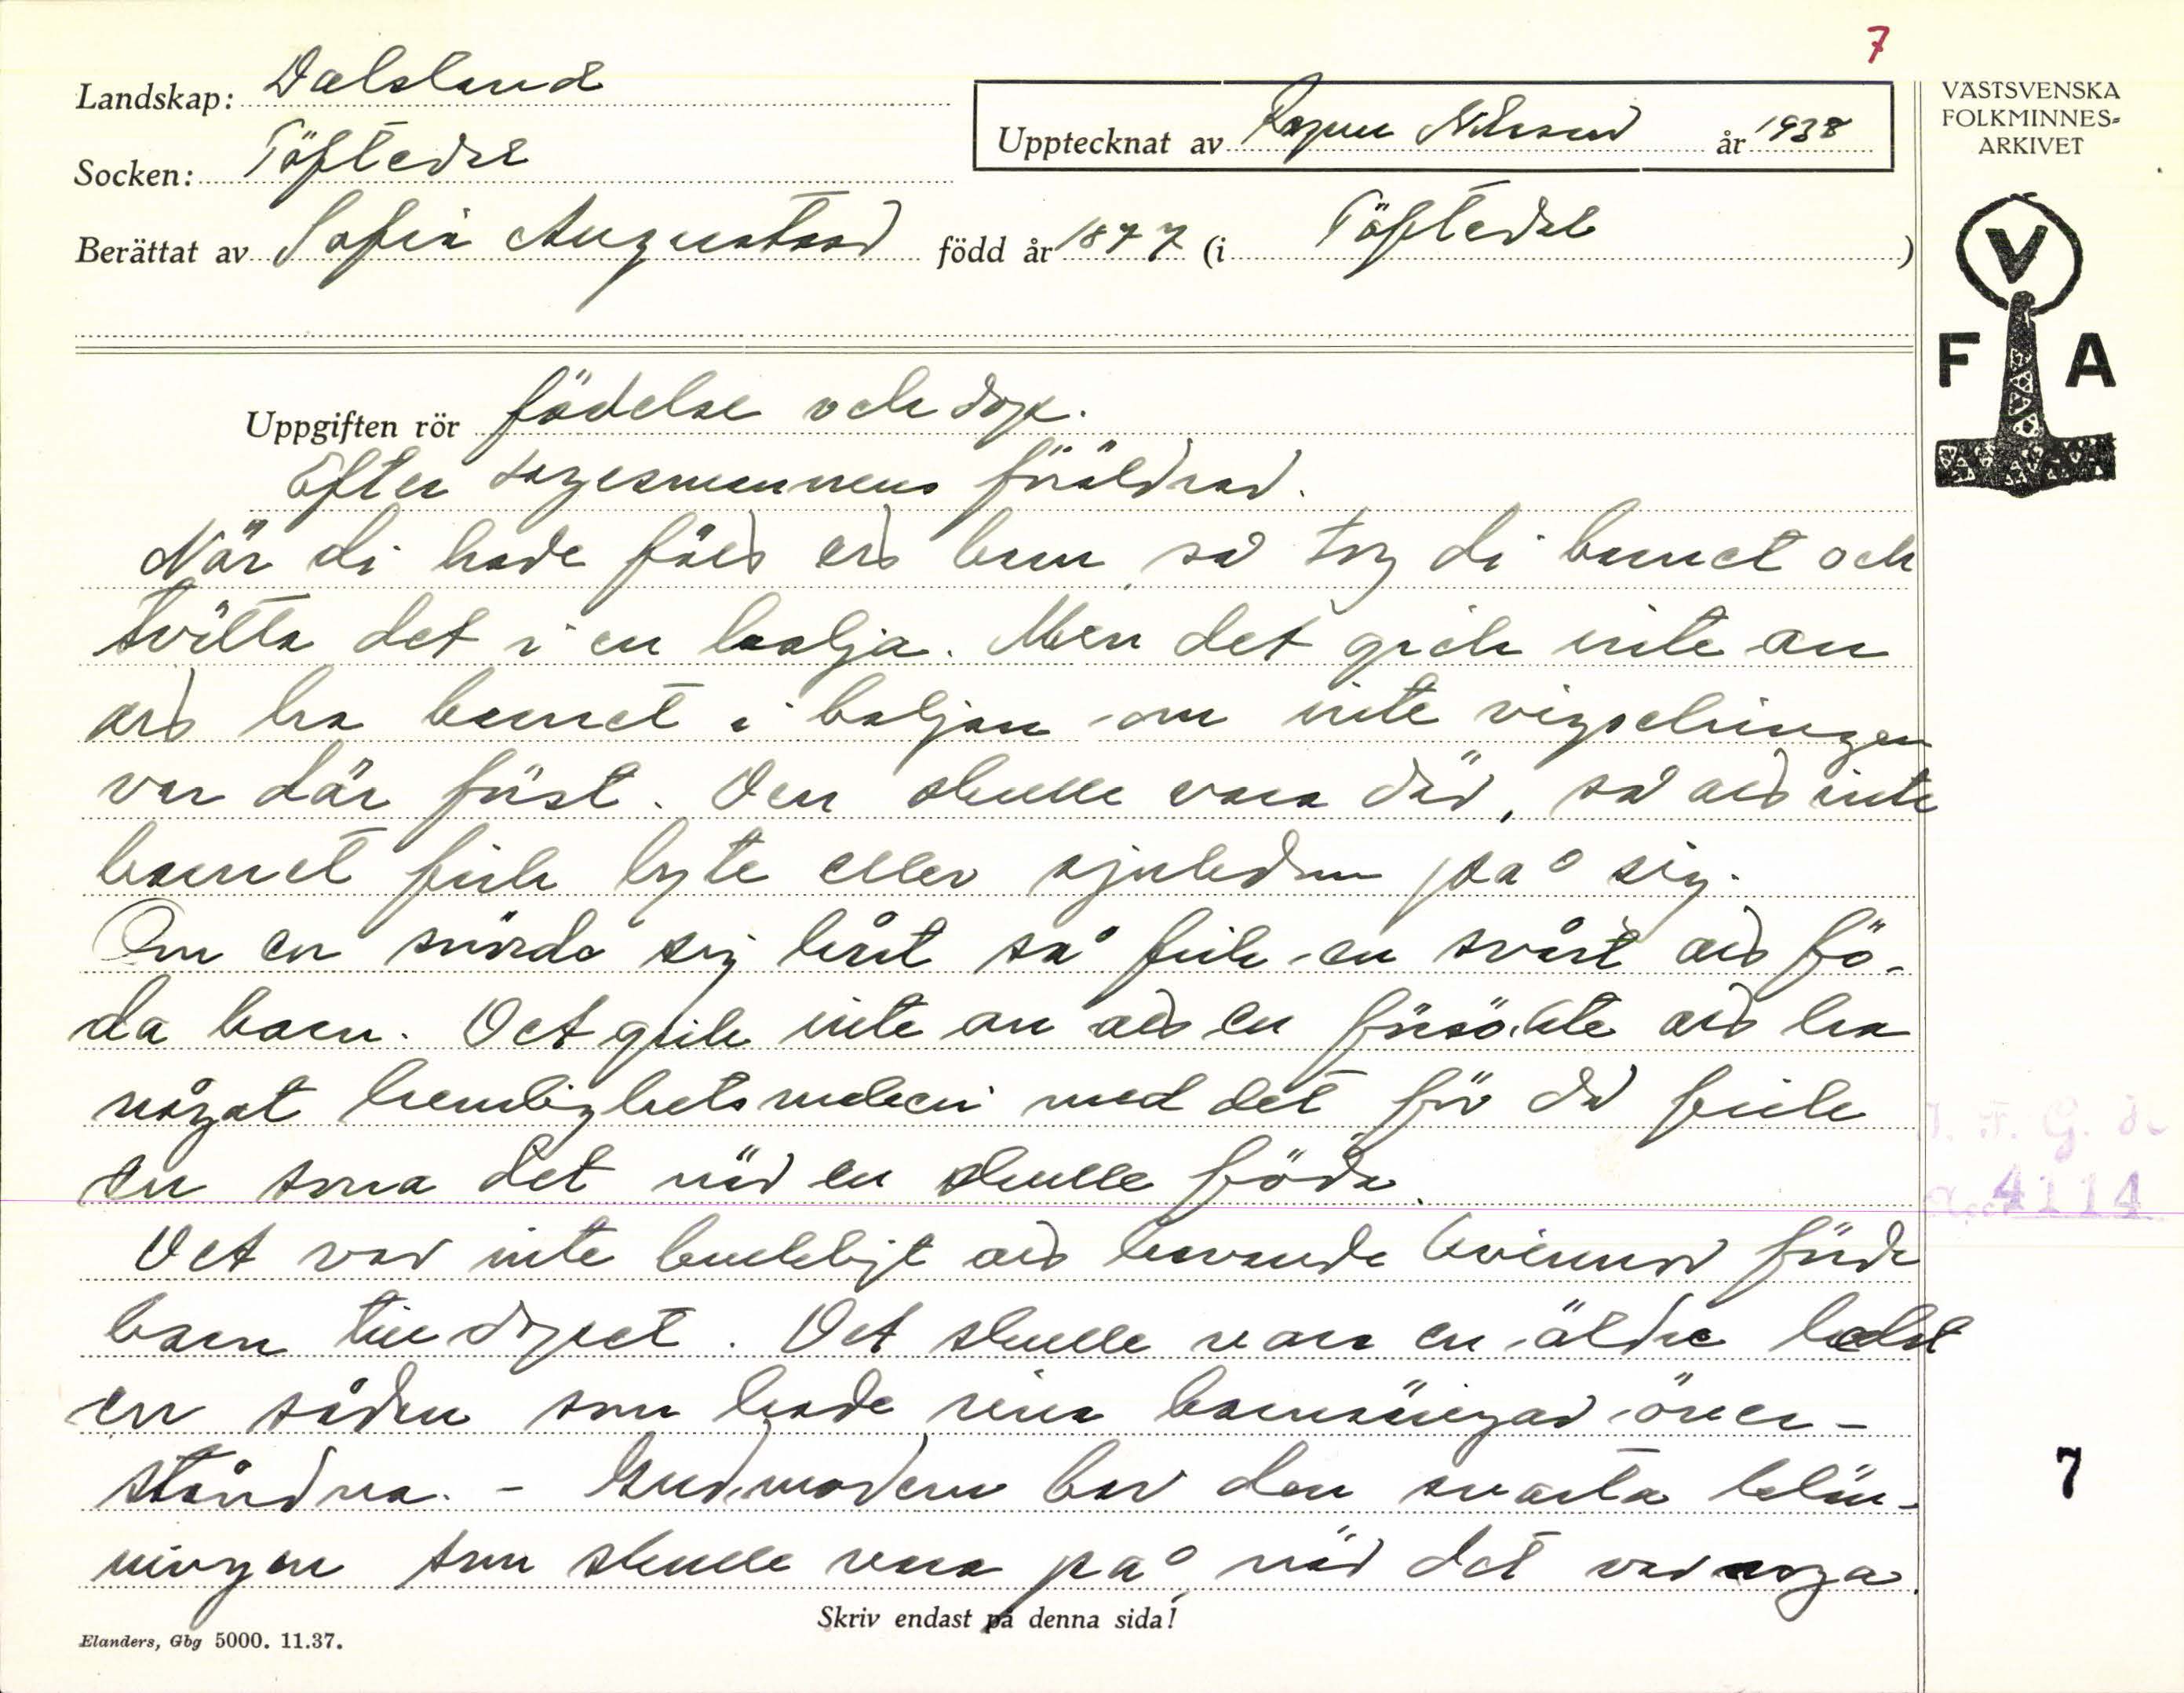 7
Landskap: Dalsland
Socken: Töftedal
Upptecknat av Ragnar Nilsson år 1938
Berättat av Sofia Augustsson född år 1877 (i Töftedal)
VÄSTSVENSKA
FOLKMINNES-
ARKIVET
V
F A
Uppgiften rör födelse och dop.
Efter sagesmannens föräldrar.
När di hade född ett barn, så tog di barnet och
tvätta det i en balja. Men det gick inte an
att ha barnet i baljan om inte vigselringen
var där först. Den skulle vara där, så att inte
barnet fick lyte eller sjukdom på sig.
Om en snörde sig hårt så fick en svårt att fö-
da barn. Det gick inte an att en försökte att ha
något hemlighetsmakeri med det för då fick
en sona det när en skulle föda.
Det var inte brukligt att havande kvinnor förde
barn till dopet. Det skulle vara en äldre helst
en sådan som hade sina barnsängar över-
ståndna. - Gudmodern bar den svarta kläd-
ningen som skulle vara på när det var noga.
I. F. G. H.
Acc. 4114
7
Skriv endast på denna sida!
Elanders, Gbg 5000. 11.37.